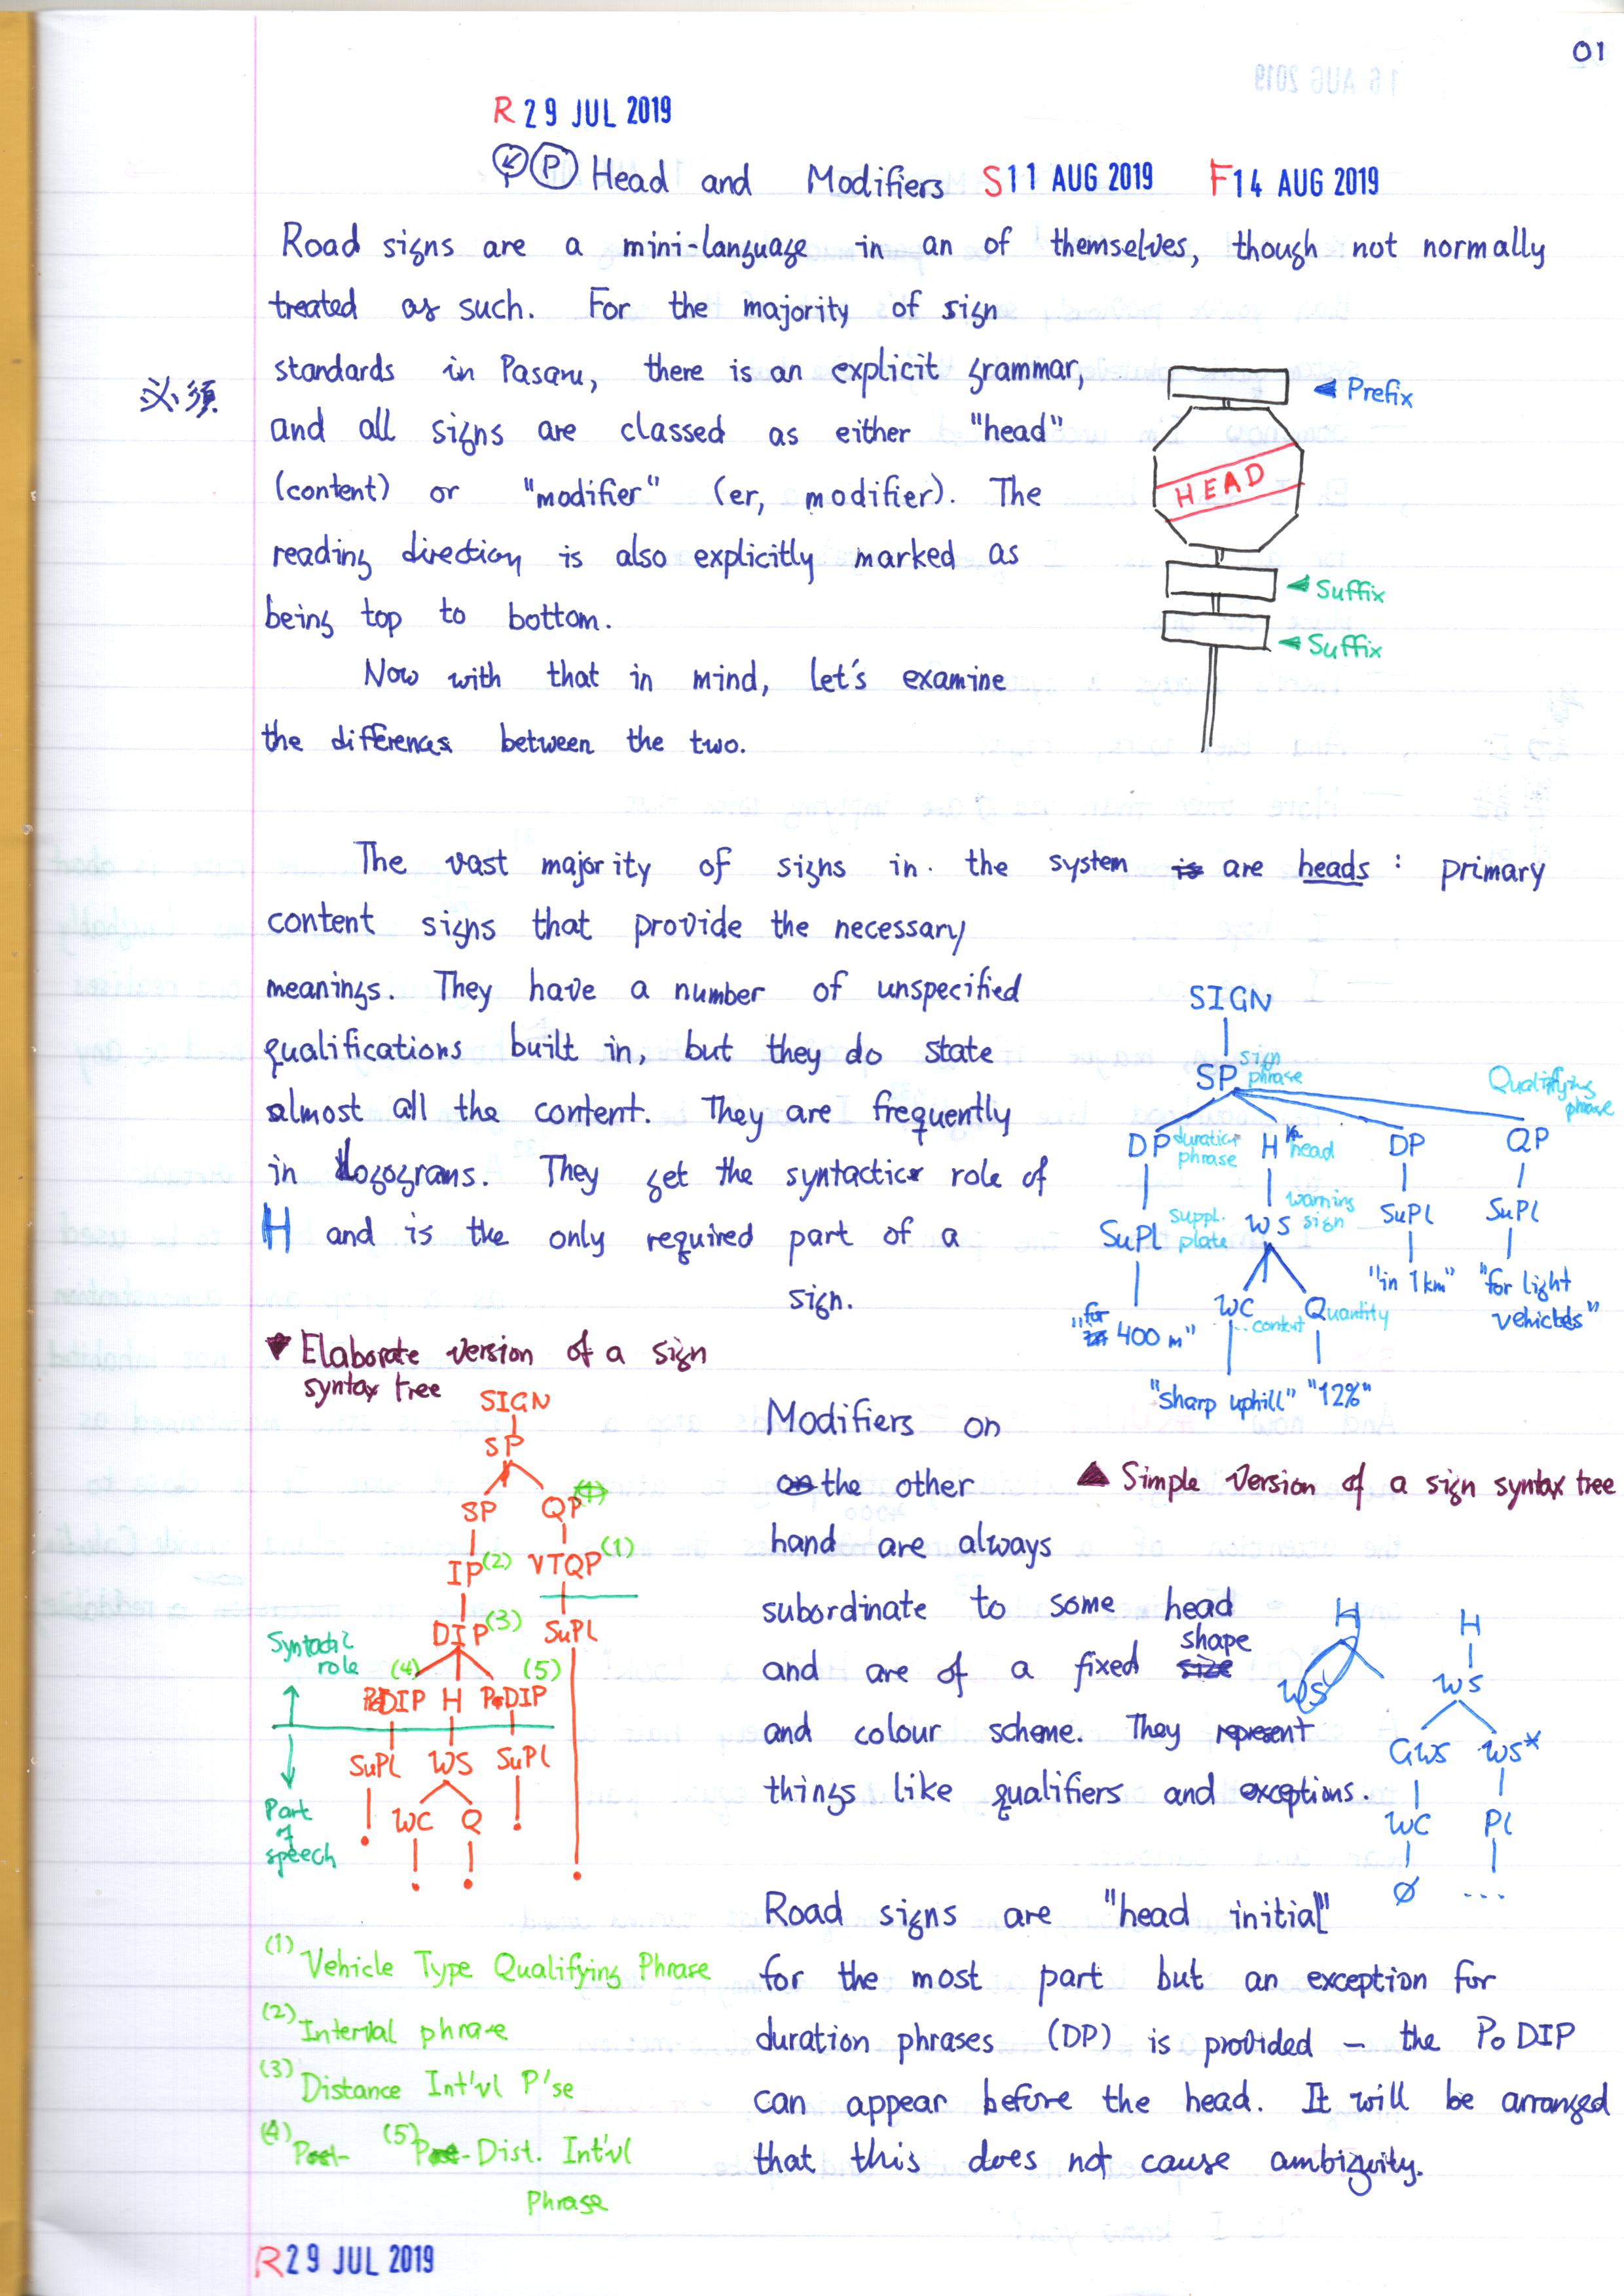 01
R 29 JUL 2019
P Head and Modifiers S 11 AUG 2019 F 14 AUG 2019
Road signs are a mini-language in an of themselves, though not normally
treated as such. For the majority of sign
standards in Pasaru, there is an explicit grammar,
必須
and all signs are classed as either "head"
(content) or "modifier" (er, modifier). The
reading direction is also explicitly marked as
being top to bottom.
Now with that in mind, let's examine
the differences between the two.
Prefix
HEAD
Suffix
Suffix
The vast majority of signs in the system is are heads: primary
content signs that provide the necessary
meanings. They have a number of unspecified
qualifications built in, but they do state
almost all the content. They are frequently
in logograms. They get the syntactic role of
H and is the only required part of a
sign.
SIGN
SP sign phrase
Qualifying phrase
DP duration phrase H head DP QP
SuPl suppl. plate WS warning sign SuPl SuPl
"for 400 m" WC content Quantity "in 1km" "for light vehicles"
"sharp uphill" "12%"
▲ Simple version of a sign syntax tree
▼ Elaborate version of a sign
syntax tree
SIGN
SP
SP QP
IP(2) VTQP(1)
DIP(3) SuPl
Syntactic role
(4) (5)
PeDIP H PoDIP
SuPl WS SuPl
WC Q
Part of speech
Modifiers on
on the other
hand are always
subordinate to some head
and are of a fixed size shape
and colour scheme. They represent
things like qualifiers and exceptions.
H
WS
H
WS
GWS WS*
WC Pl
Ø ...
Road signs are "head initial"
for the most part but an exception for
duration phrases (DP) is provided – the PoDIP
can appear before the head. It will be arranged
that this does not cause ambiguity.
(1) Vehicle Type Qualifying Phrase
(2) Interval phrase
(3) Distance Int'vl P'se
(4) Post- (5) -Dist. Int'vl
Phrase
R 29 JUL 2019